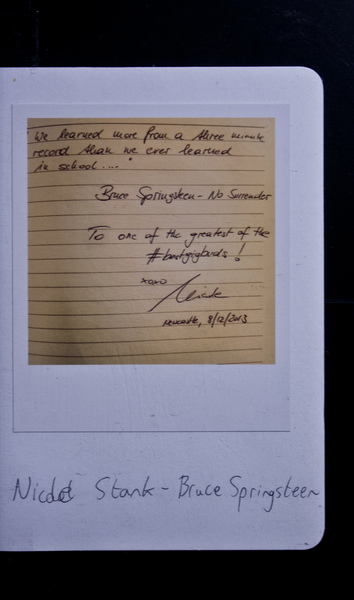 "We learned more from a three minute
record than we ever learned
in school...."
Bruce Springsteen - No Surrender
To one of the greatest of the
!
xoxo
Nicole
Newcastle, 8/12/2013
Nicole Stark - Bruce Springsteen